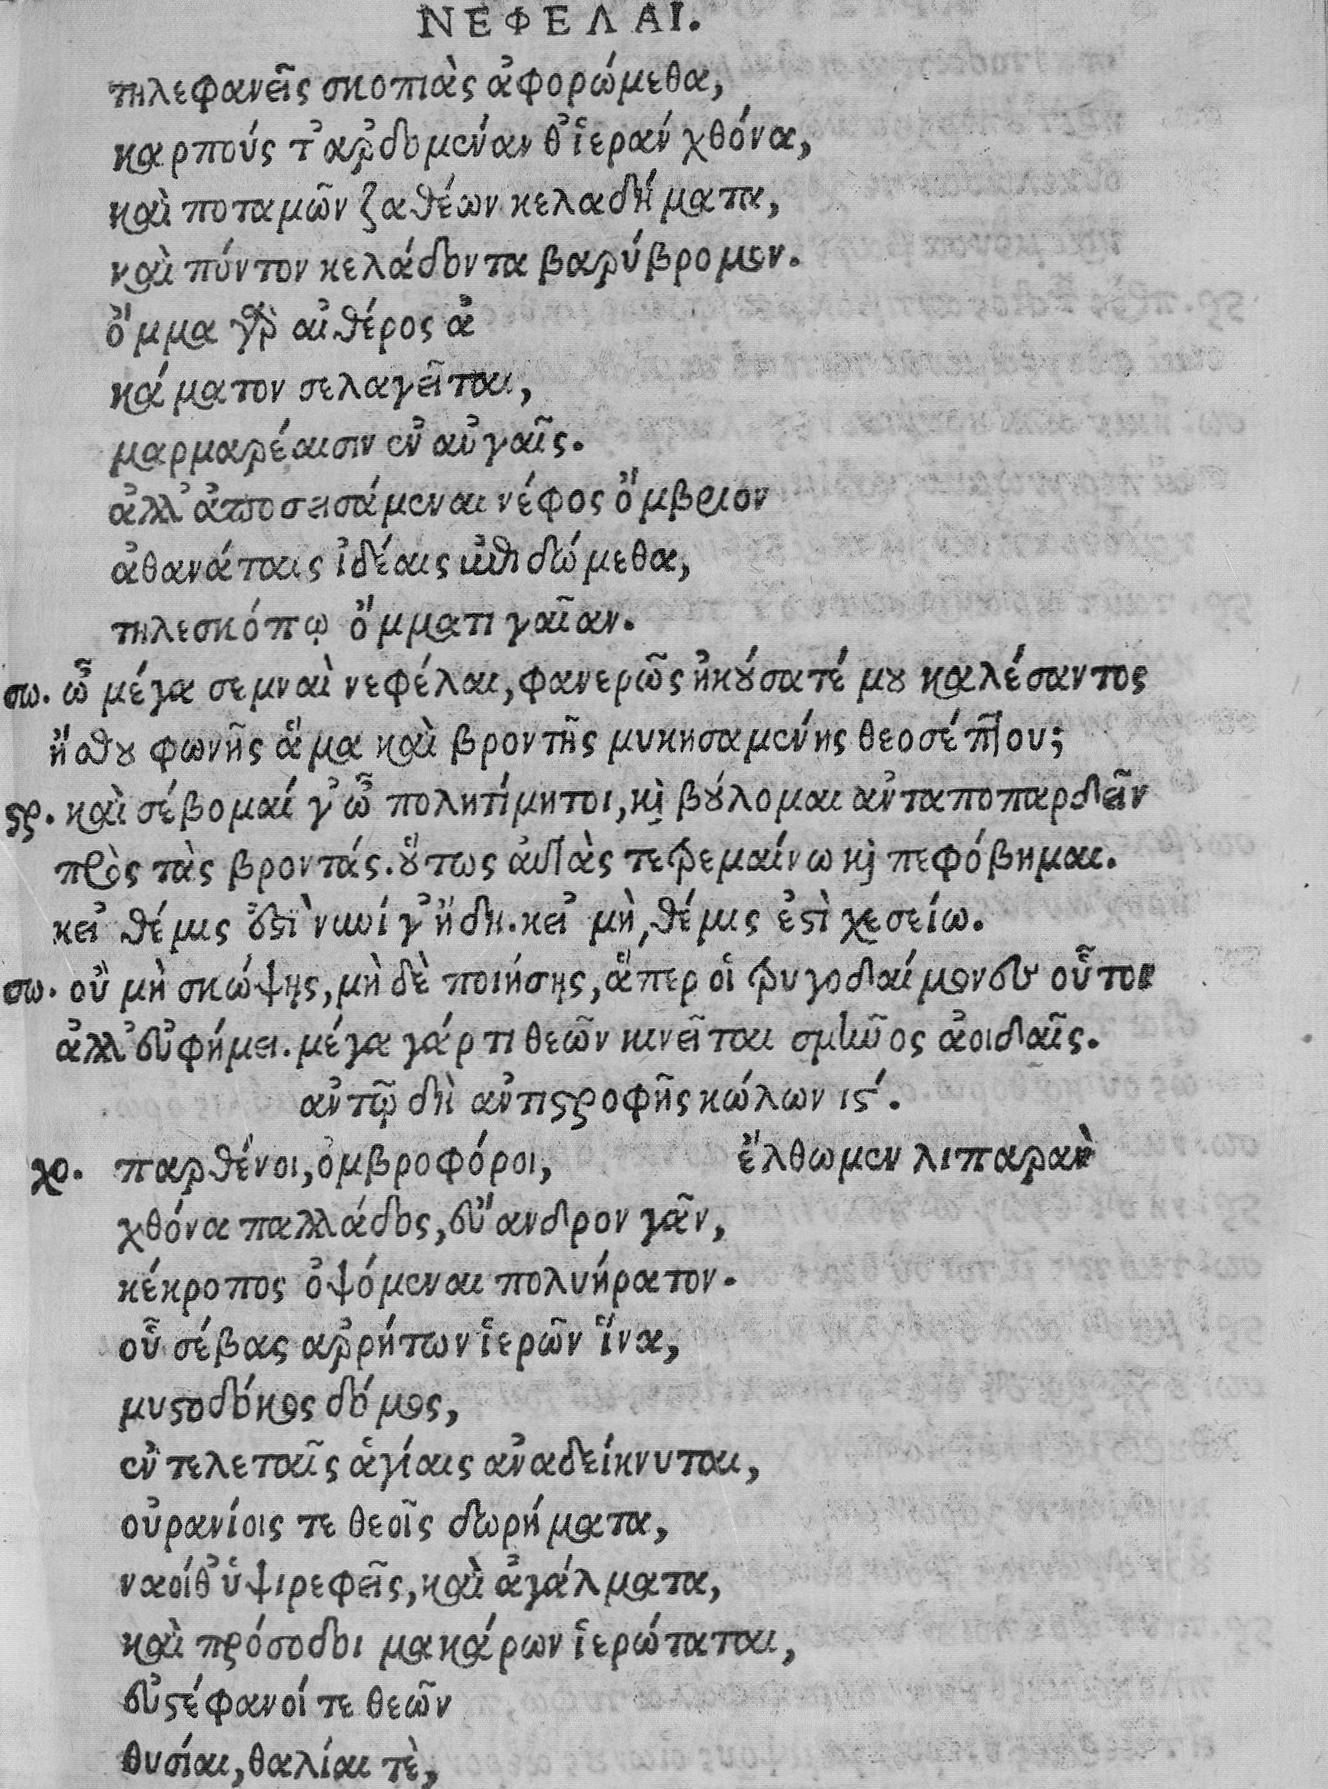 ΝΕΦΕΛΑΙ.
τηλεφανεῖς σκοπιὰς ἀφορώμεθα,
καρπούς τ' ἀρδομέναν θ' ἱερὰν χθόνα,
καὶ ποταμῶν ζαθέων κελαδήματα,
καὶ πόντον κελάδοντα βαρύβρομον.
ὄμμα γὰρ αἰθέρος ἀ
κάματον σελαγεῖται,
μαρμαρέαισιν ἐν αὐγαῖς.
ἀλλ' ἀποσεισάμεναι νέφος ὄμβριον
ἀθανάταις ἰδέαις ἐπιδώμεθα,
τηλεσκόπῳ ὄμματι γαῖαν.
σω. ὦ μέγα σεμναὶ νεφέλαι, φανερῶς ἠκούσατέ μου καλέσαντος
ᾔσθου φωνῆς ἅμα καὶ βροντῆς μυκησαμένης θεοσέπτου;
ςρ. καὶ σέβομαί γ' ὦ πολητίμητοι, καὶ βούλομαι ἀνταποπαρδεῖν
πρὸς τὰς βροντάς. οὕτως αὐτὰς τετρεμαίνω καὶ πεφόβημαι.
κεἰ θέμις ἐστὶ νυνί γ' ἤδη. κεἰ μὴ, θέμις ἐστὶ χεσείω.
σω. οὐ μὴ σκώψῃς, μὴ δὲ ποιήσῃς, ἅπερ οἱ τρυγοδαίμονες οὗτοι
ἀλλ' εὐφήμει. μέγα γάρ τι θεῶν κινεῖται σμῆνος ἀοιδαῖς.
αὐτῷ δὴ ἀντιστροφῆς κώλων ις´.
χο. παρθένοι, ὀμβροφόροι, ἔλθωμεν λιπαρὰν
χθόνα παλλάδος, εὔανδρον γᾶν,
κέκροπος ὀψόμεναι πολυήρατον.
οὗ σέβας ἀῤῥήτων ἱερῶν ἵνα,
μυστοδόκος δόμος,
ἐν τελεταῖς ἁγίαις ἀναδείκνυται,
οὐρανίοις τε θεοῖς δωρήματα,
ναοί θ' ὑψιρεφεῖς, καὶ ἀγάλματα,
καὶ πρόσοδοι μακάρων ἱερώταται,
εὐστέφανοί τε θεῶν
θυσίαι, θαλίαι τὲ,